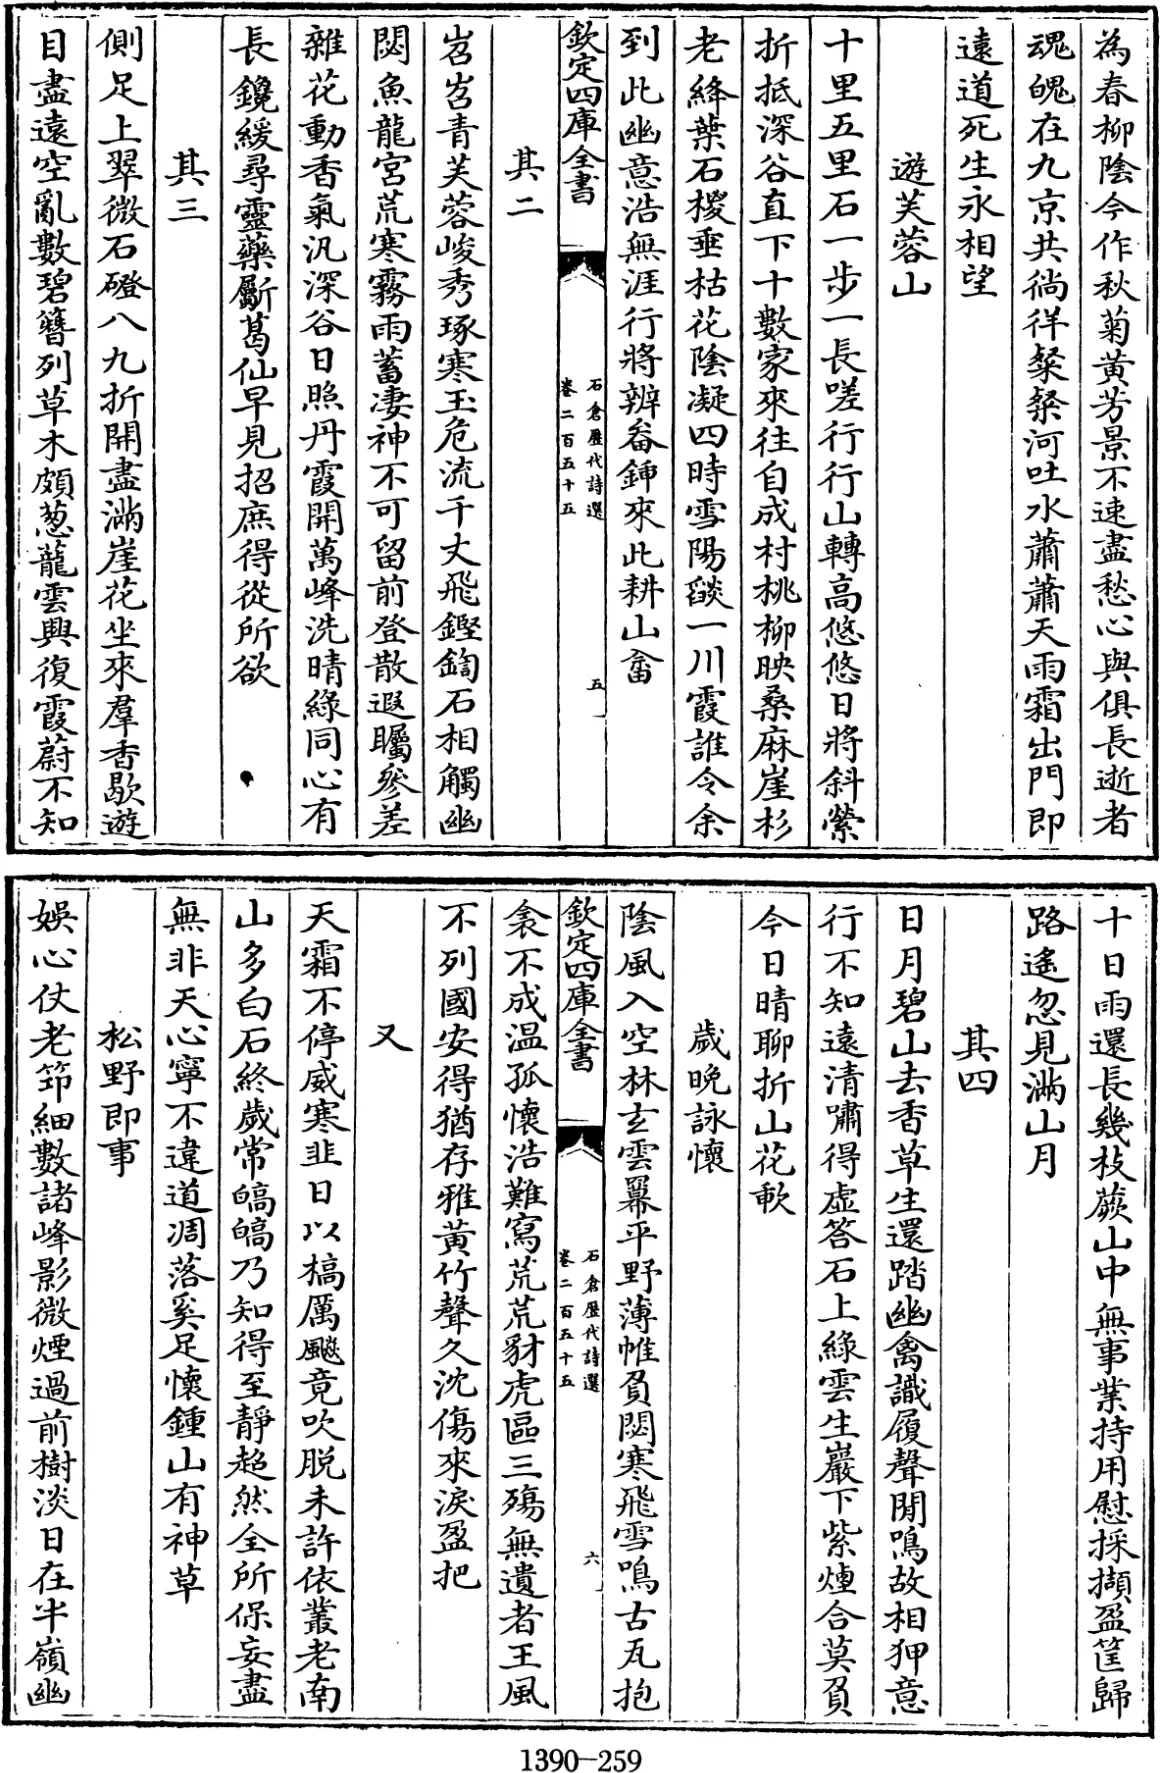 為春柳陰今作秋菊黃芳景不速盡愁心與俱長逝者
魂魄在九京共徜徉粲粲河吐水蕭蕭天雨霜出門即
遠道死生永相望
遊芙蓉山
十里五里石一步一長嗟行行山轉高悠悠日將斜縈
折抵深谷直下十數家來往自成村桃柳映桑麻崖杉
老絳葉石㮨垂枯花陰凝四時雪陽燄一川霞誰令余
到此幽意浩無涯行將辨畚鍤來此耕山畬
欽定四庫全書
石倉歷代詩選
卷二百五十五
五
其二
岧岧青芙蓉峻秀琢寒玉危流千丈飛鏗鍧石相觸幽
閟魚龍宮荒寒霧雨蓄淒神不可留前登散遐矚參差
雜花動香氣汎深谷日照丹霞開萬峰洗晴綠同心有
長鑱緩尋靈藥斸葛仙早見招庶得從所欲
其三
側足上翠微石磴八九折開盡滿崖花坐來羣香歇遊
目盡遠空亂數碧簪列草木頗蔥蘢雲興復霞蔚不知
十日雨還長幾枝蕨山中無事業持用慰採擷盈筐歸
路遙忽見滿山月
其四
日月碧山去香草生還踏幽禽識履聲閒鳴故相狎意
行不知遠清嘯得虛答石上綠雲生巖下紫煙合莫負
今日晴聊折山花歃
歲晚詠懷
陰風入空林玄雲冪平野薄帷負閟寒飛雪鳴古瓦抱
欽定四庫全書
石倉歷代詩選
卷二百五十五
六
衾不成溫孤懷浩難寫荒荒豺虎區三殤無遺者王風
不列國安得猶存雅黃竹聲久沈傷來淚盈把
又
天霜不停威寒韭日以槁厲飈竟吹脱未許依叢老南
山多白石終歲常皜皜乃知得至靜超然全所保妄盡
無非天心寧不違道凋落奚足懷鍾山有神草
松野即事
娛心仗老筇細數諸峰影微煙過前樹淡日在半嶺幽
1390—259